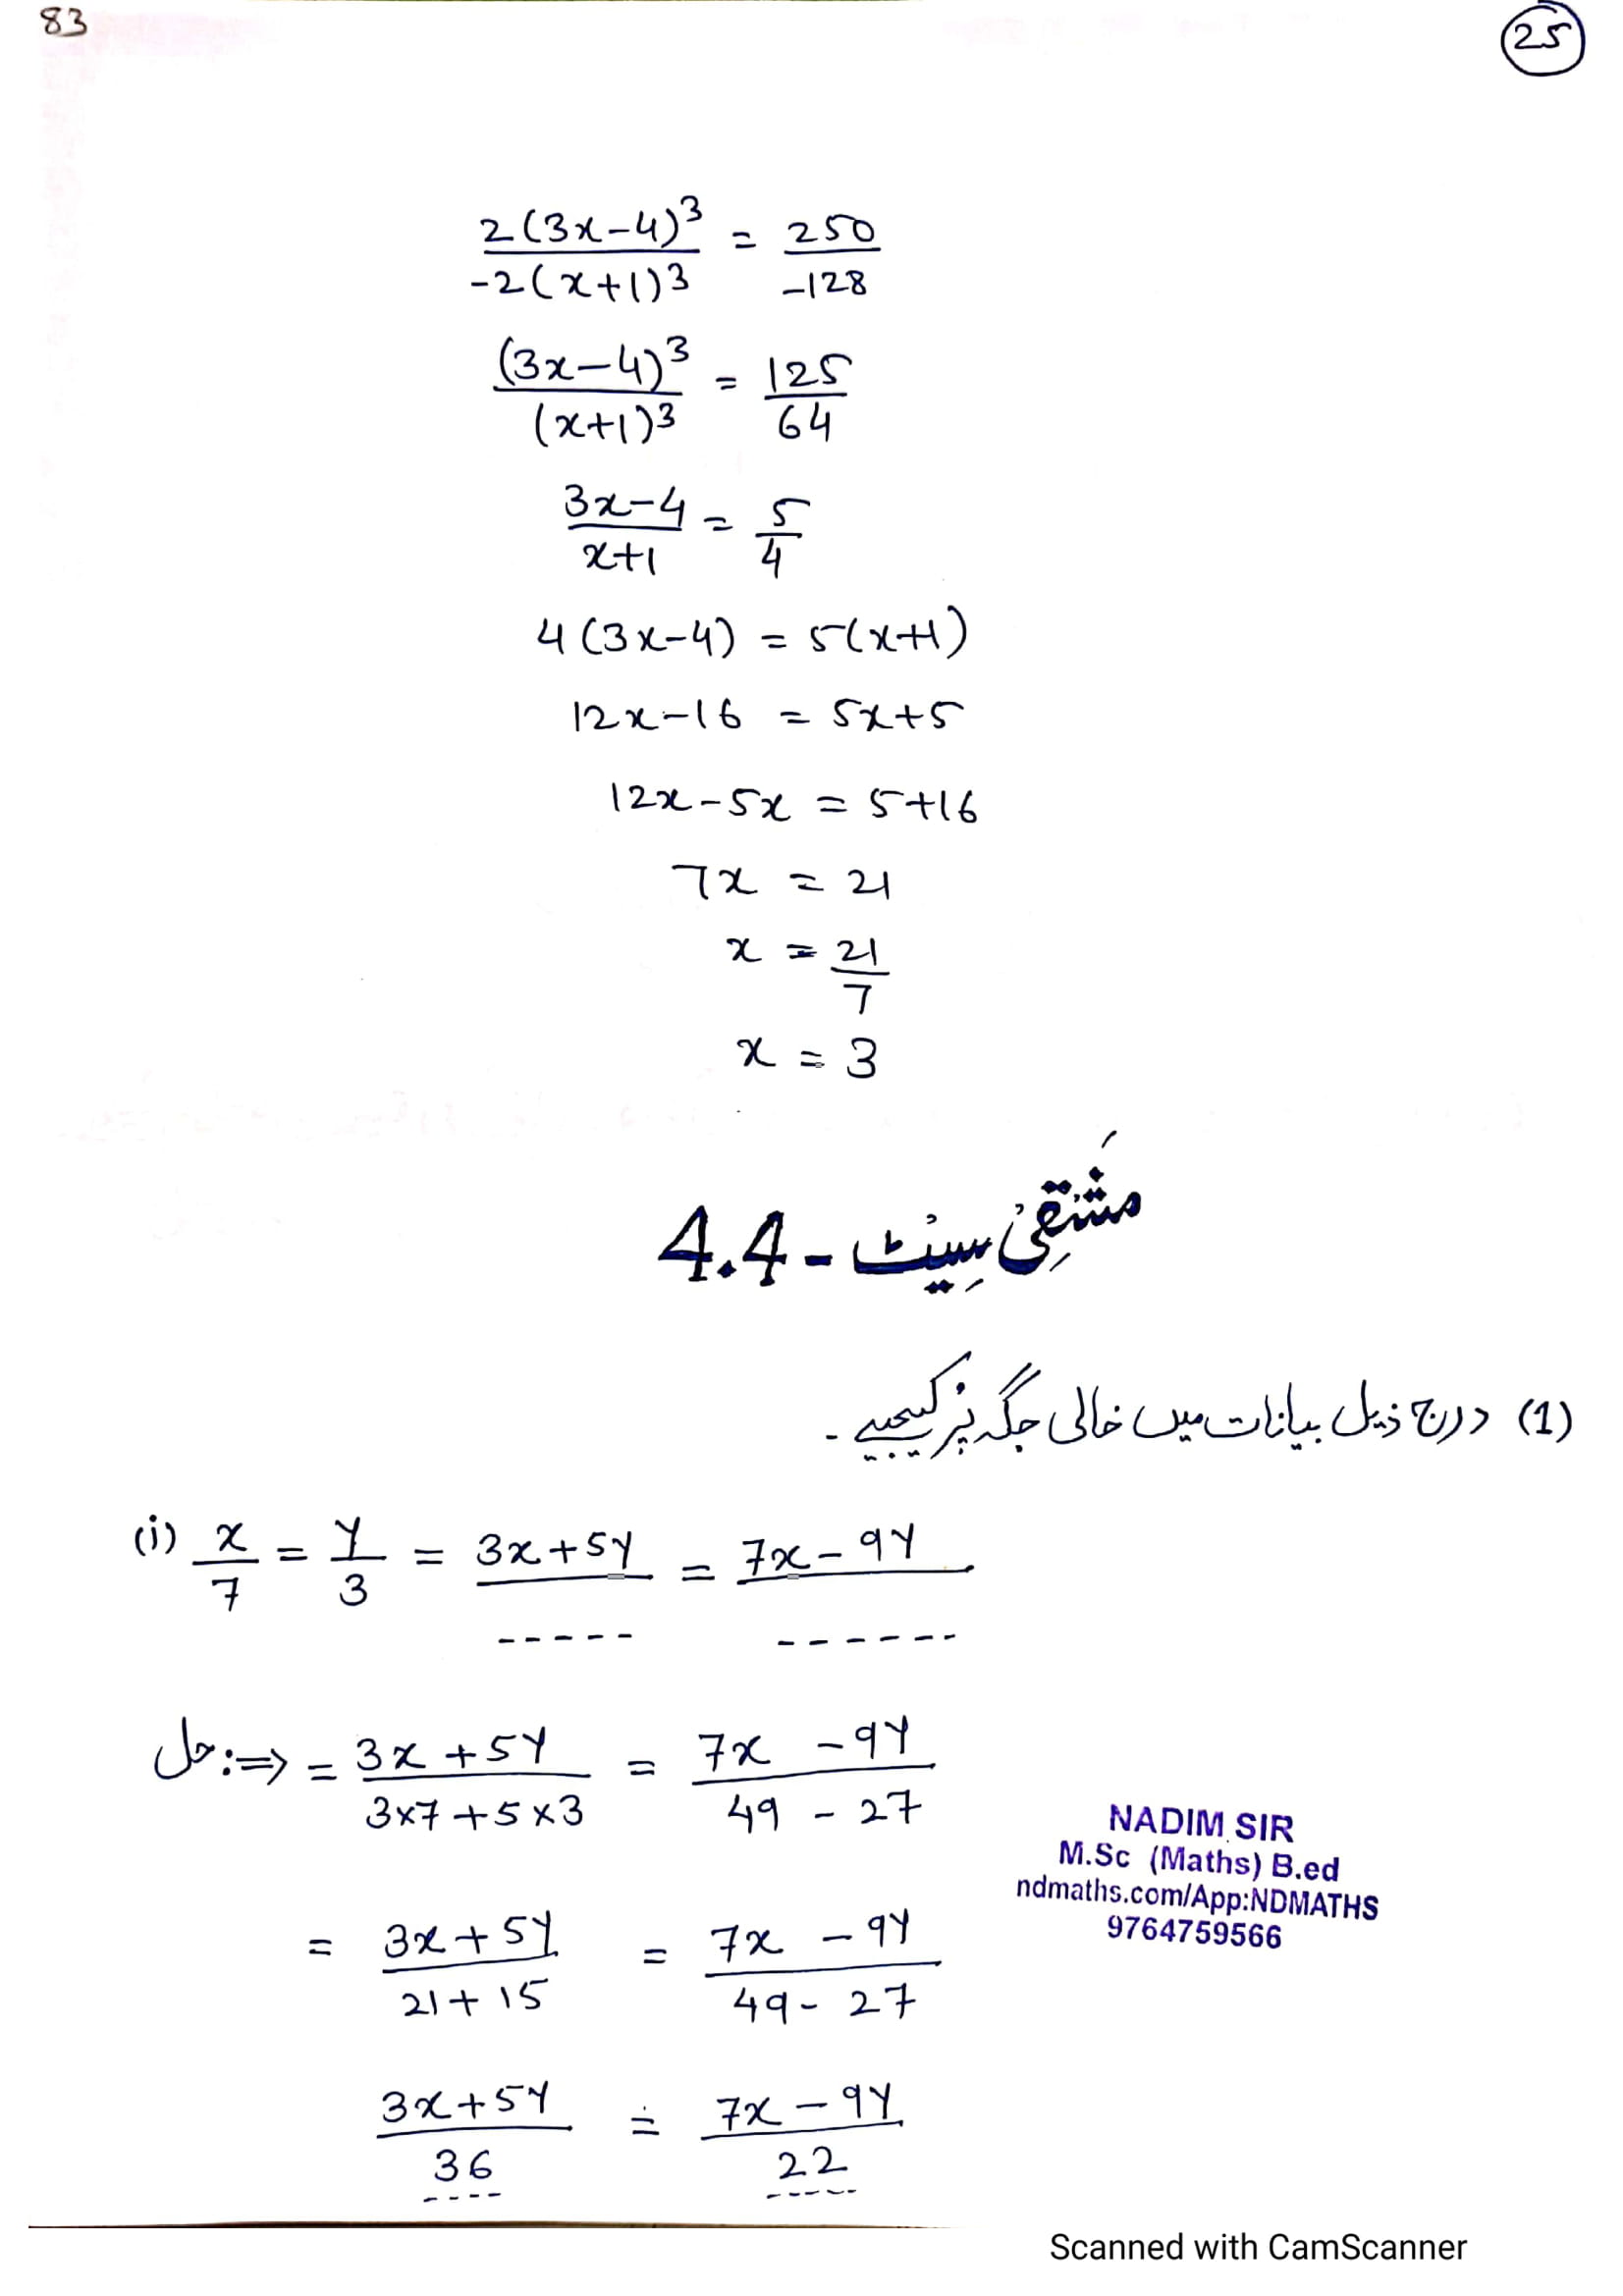 83
25
2(3x-4)³/-2(x+1)³ = 250/-128
(3x-4)³/(x+1)³ = 125/64
3x-4/x+1 = 5/4
4(3x-4) = 5(x+1)
12x-16 = 5x+5
12x-5x = 5+16
7x = 21
x = 21/7
x = 3
مَشْقِیْ سِیْٹ - 4.4
(1) درج ذیل بیانات میں خالی جگہ پُر کیجیے۔
(i) x/7 = y/3 = 3x+5y/----- = 7x-9y/------
حل :⇒ = 3x+5y/3×7+5×3 = 7x-9y/49-27
= 3x+5y/21+15 = 7x-9y/49-27
3x+5y/36 = 7x-9y/22
NADIM SIR
M.Sc (Maths) B.ed
ndmaths.com/App:NDMATHS
9764759566
Scanned with CamScanner